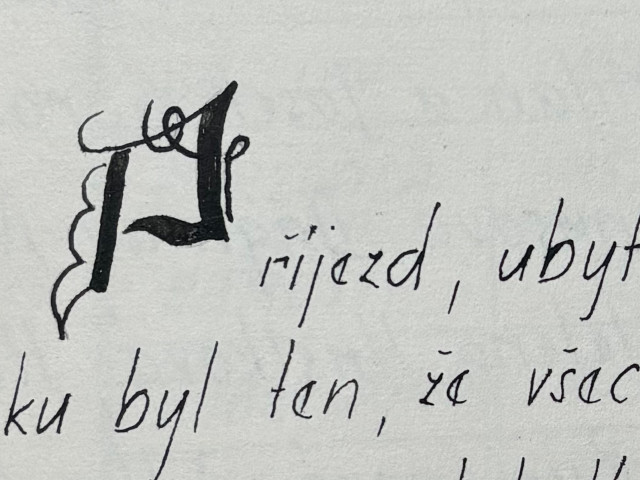 Příjezd, ubyt
ku byl ten, že všec